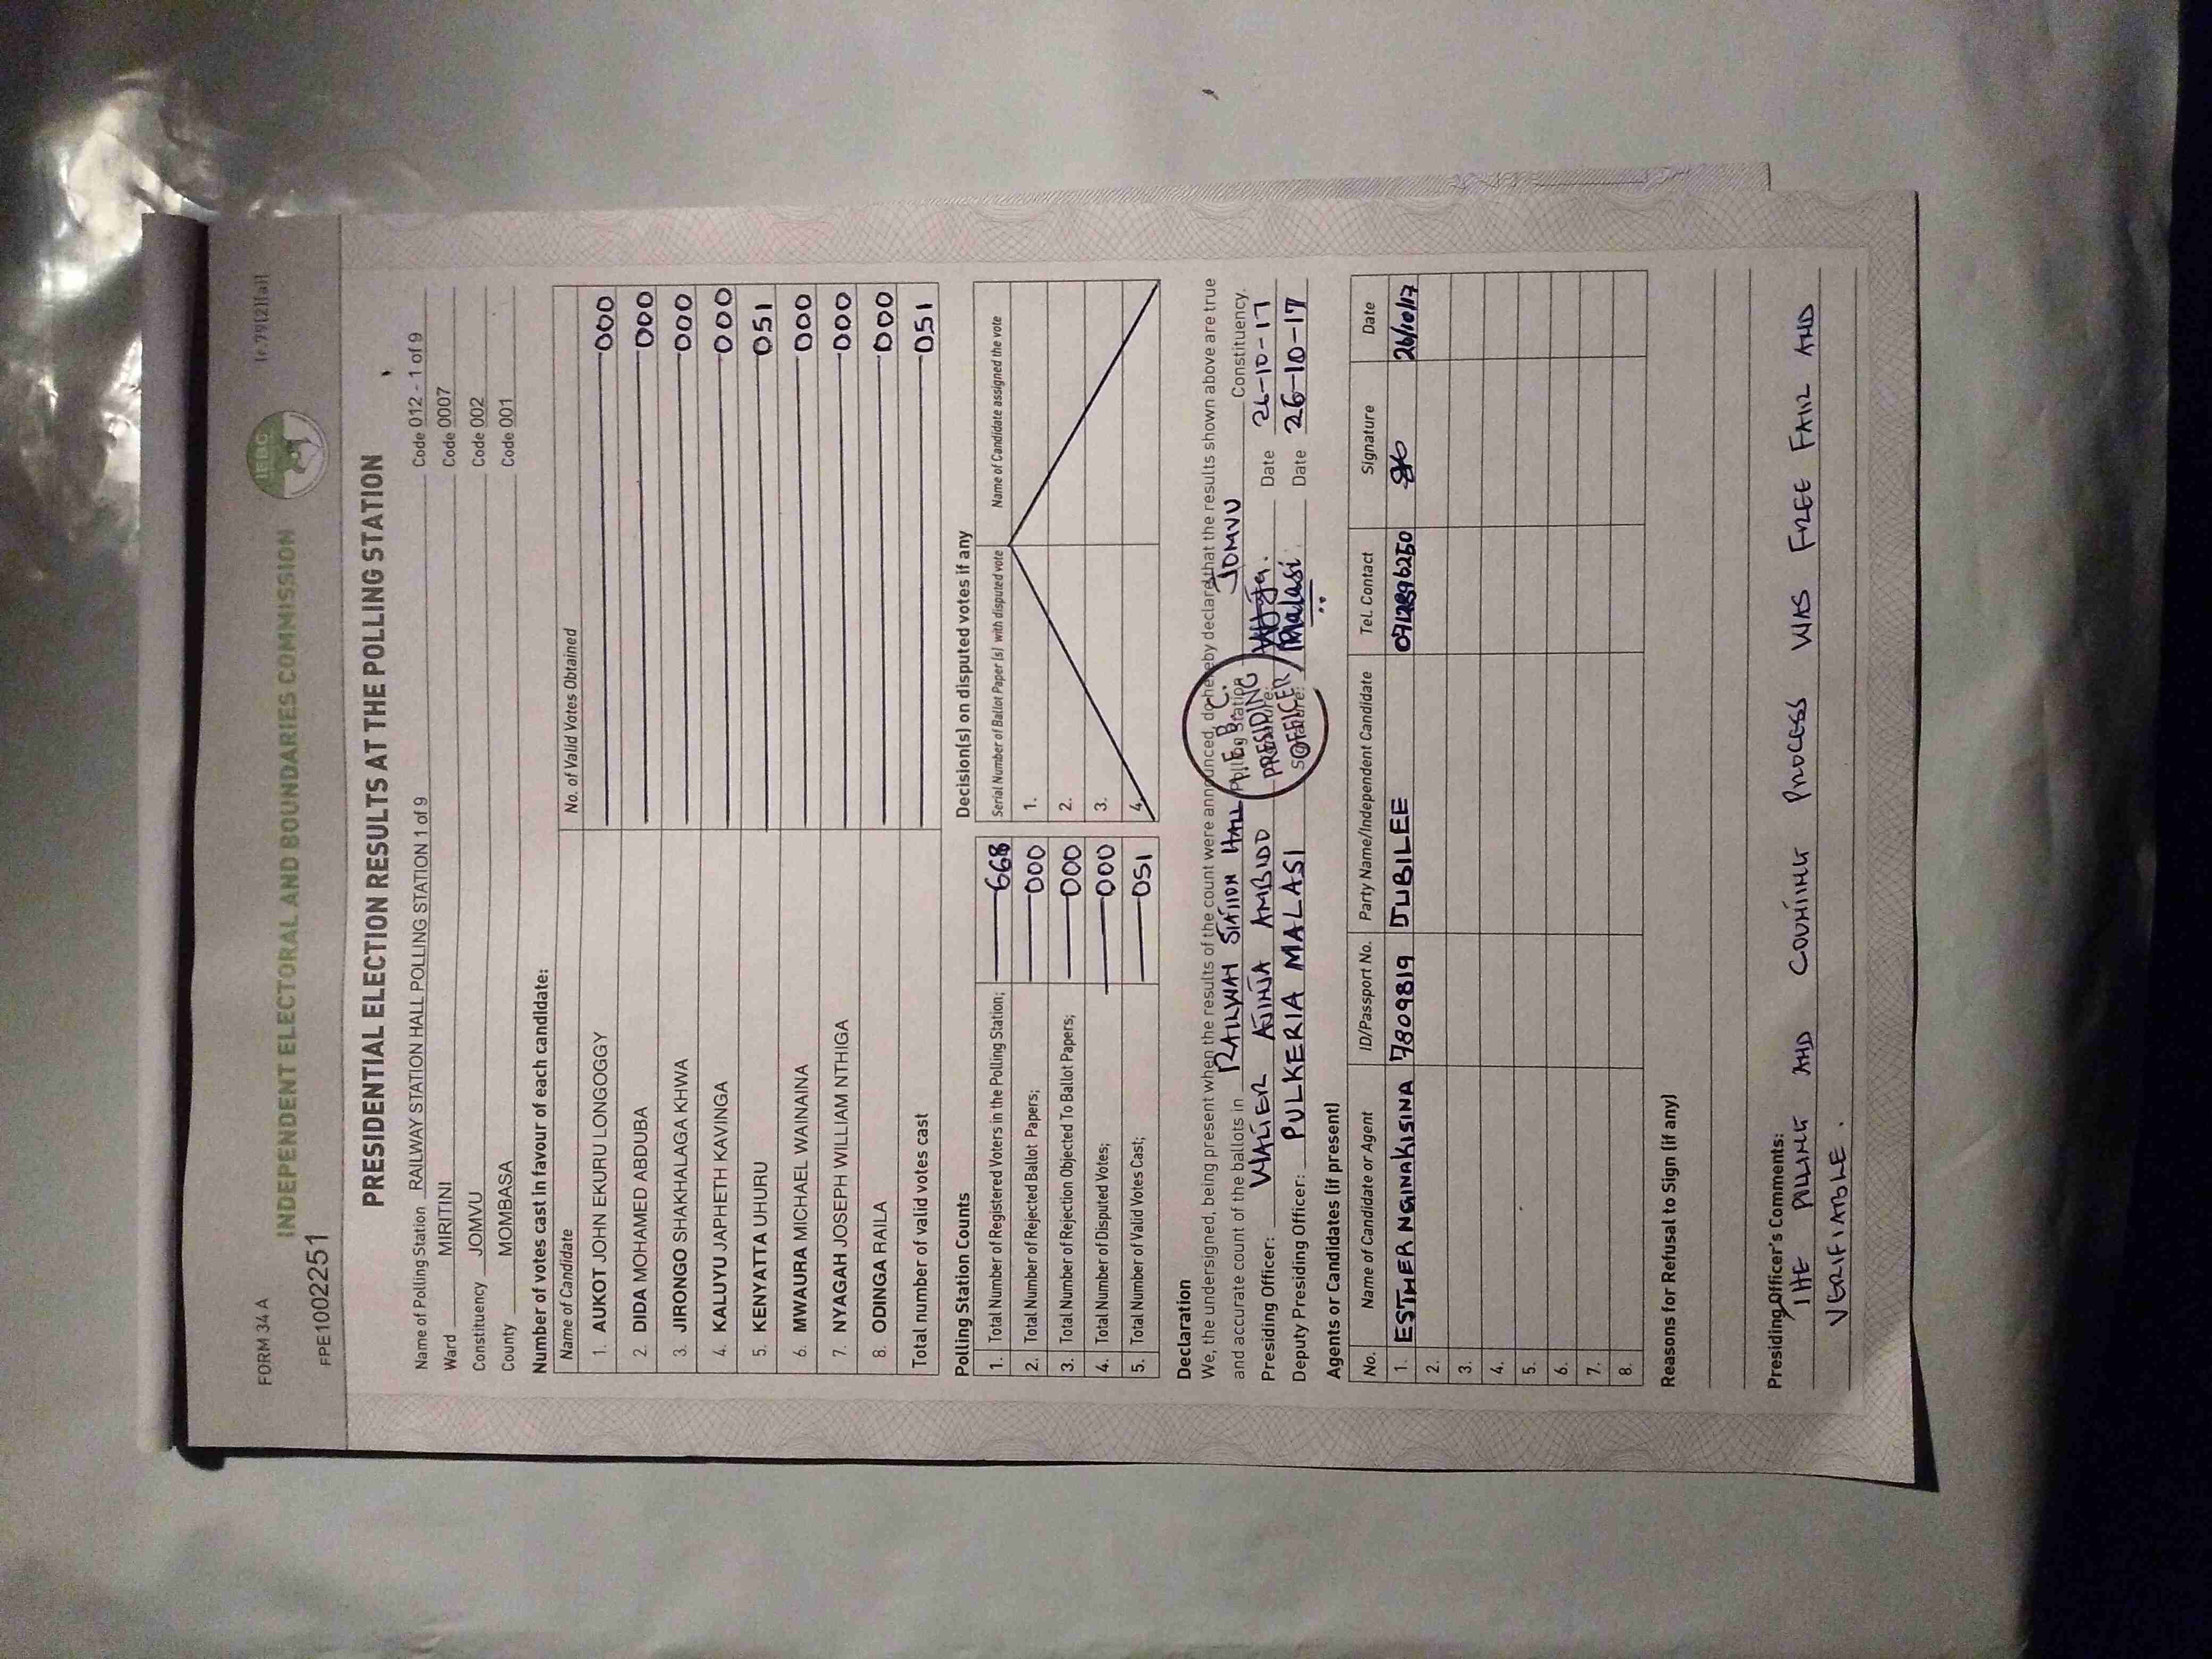 FORM 34 A
(r.79(2)(a))
INDEPENDENT ELECTORAL AND BOUNDARIES COMMISSION
IEBC
FPE1002251
PRESIDENTIAL ELECTION RESULTS AT THE POLLING STATION
Name of Polling Station RAILWAY STATION HALL POLLING STATION 1 of 9 Code 012 - 1 of 9
Ward MIRITINI Code 0007
Constituency JOMVU Code 002
County MOMBASA Code 001
Number of votes cast in favour of each candidate:
Name of Candidate No. of Valid Votes Obtained
1. AUKOT JOHN EKURU LONGOGGY 000
2. DIDA MOHAMED ABDUBA 000
3. JIRONGO SHAKHALAGA KHWA 000
4. KALUYU JAPHETH KAVINGA 000
5. KENYATTA UHURU 051
6. MWAURA MICHAEL WAINAINA 000
7. NYAGAH JOSEPH WILLIAM NTHIGA 000
8. ODINGA RAILA 000
Total number of valid votes cast 051
Polling Station Counts
1. Total Number of Registered Voters in the Polling Station; 668
2. Total Number of Rejected Ballot Papers; 000
3. Total Number of Rejection Objected To Ballot Papers; 000
4. Total Number of Disputed Votes; 000
5. Total Number of Valid Votes Cast; 051
Decision(s) on disputed votes if any
Serial Number of Ballot Paper (s) with disputed vote Name of Candidate assigned the vote
1.
2.
3.
4.
Declaration
We, the undersigned, being present when the results of the count were announced, do hereby declare that the results shown above are true
and accurate count of the ballots in RAILWAY STATION HALL Polling Station JOMVU Constituency.
Presiding Officer: WALTER AMBIDO Signature: Date 26-10-17
Deputy Presiding Officer: PULKERIA MALASI Signature: Malasi Date 26-10-17
I.E.B.C.
PRESIDING
OFFICER
Agents or Candidates (if present)
No. Name of Candidate or Agent ID/Passport No. Party Name/Independent Candidate Tel. Contact Signature Date
1. ESTHER NGINAKISINA 7809819 JUBILEE 26/10/17
2.
3.
4.
5.
6.
7.
8.
Reasons for Refusal to Sign (if any)
Presiding Officer's Comments:
THE POLLING AND COUNTING PROCESS WAS FREE FAIR AND
VERIFIABLE.